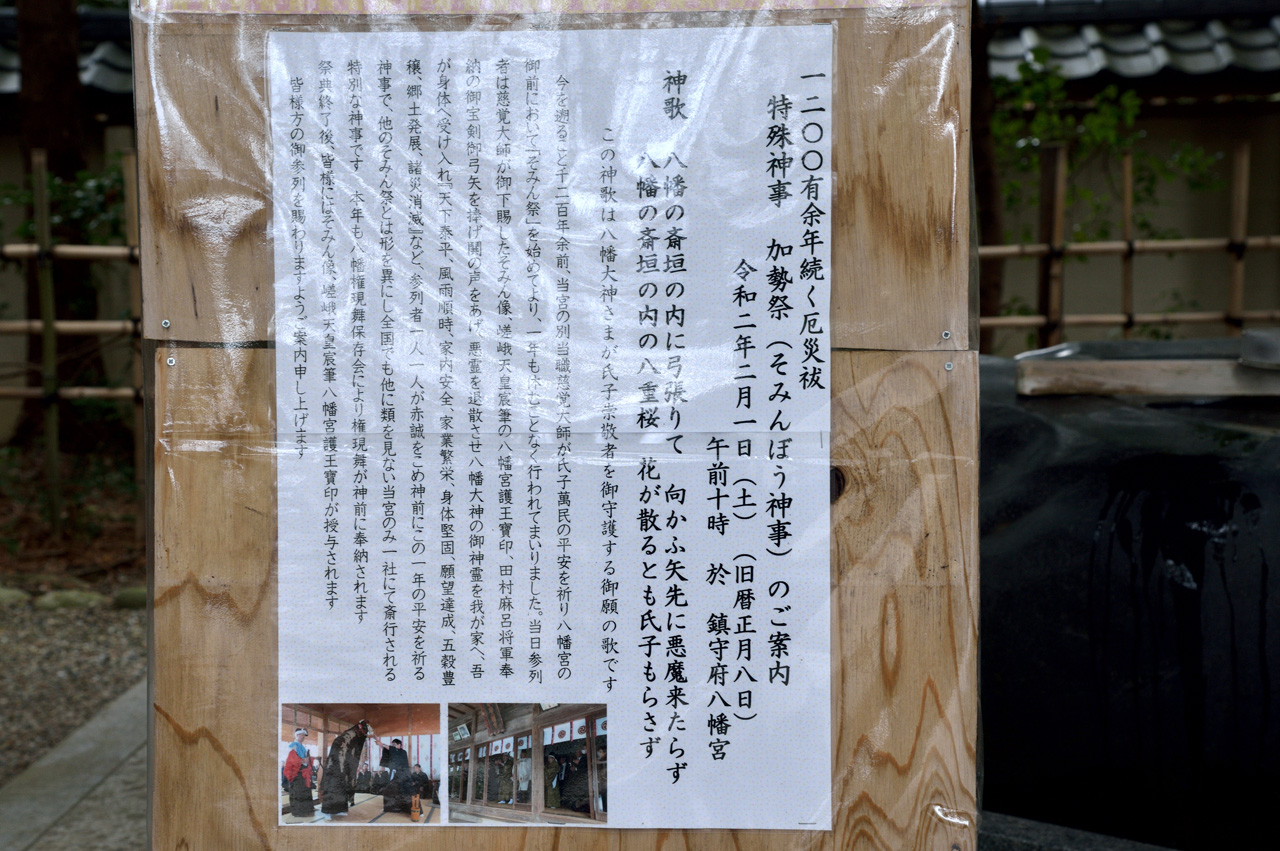 一二〇〇有余年続く厄災祓
特殊神事　加勢祭（そみんぼう神事）のご案内
令和二年二月一日（土）（旧暦正月八日）
午前十時　於　鎮守府八幡宮
神歌　八幡の斎垣の内に弓張りて　向かふ矢先に悪魔来たらず
八幡の斎垣の内の八重桜　花が散るとも氏子もらさず
この神歌は八幡大神さまが氏子崇敬者を御守護する御願の歌です
今を遡ること千二百年余前、当宮の別当職慈覚大師が氏子萬民の平安を祈り八幡宮の
御前において「そみん祭」を始めてより、一年も休むことなく行われてまいりました。当日参列
者は慈覚大師が御下賜したそみん像、嵯峨天皇宸筆の八幡宮護王寶印、田村麻呂将軍奉
納の御宝剣御弓矢を捧げ鬨の声をあげ、悪霊を退散させ八幡大神の御神霊を我が家へ、吾
が身体へ受け入れ『天下泰平、風雨順時、家内安全、家業繁栄、身体堅固、願望達成、五穀豊
穣、郷土発展、諸災消滅』など、参列者一人一人が赤誠をこめ神前にこの一年の平安を祈る
神事で、他のそみん祭とは形を異にし全国でも他に類を見ない当宮のみ一社にて斎行される
特別な神事です　本年も八幡権現舞保存会により権現舞が神前に奉納されます
祭典終了後、皆様にはそみん像、嵯峨天皇宸筆八幡宮護王寶印が授与されます
皆様方の御参列を賜わりますようご案内申し上げます